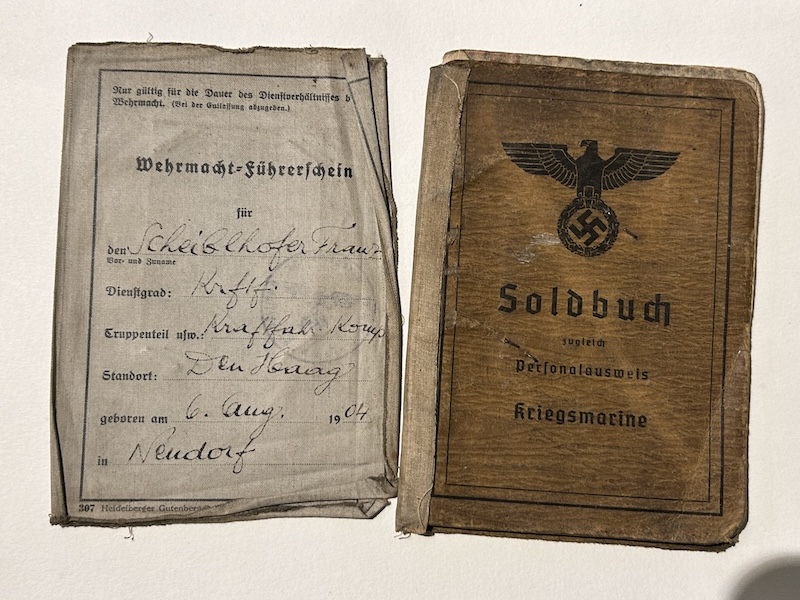 Nur gültig für die Dauer des Dienstverhältnisses b
Wehrmacht. (Bei der Entlassung abzugeben.)
Wehrmacht-Führerschein
für
den Scheiblhofer Franz
Vor- und Zuname
Dienstgrad: Krftf.
Truppenteil usw.: Kraftfahr. Komp
Standort: Den Haag
geboren am 6. Aug. 1904
in Neudorf
307 Heidelberger Gutenberg
Soldbuch
zugleich
Personalausweis
Kriegsmarine